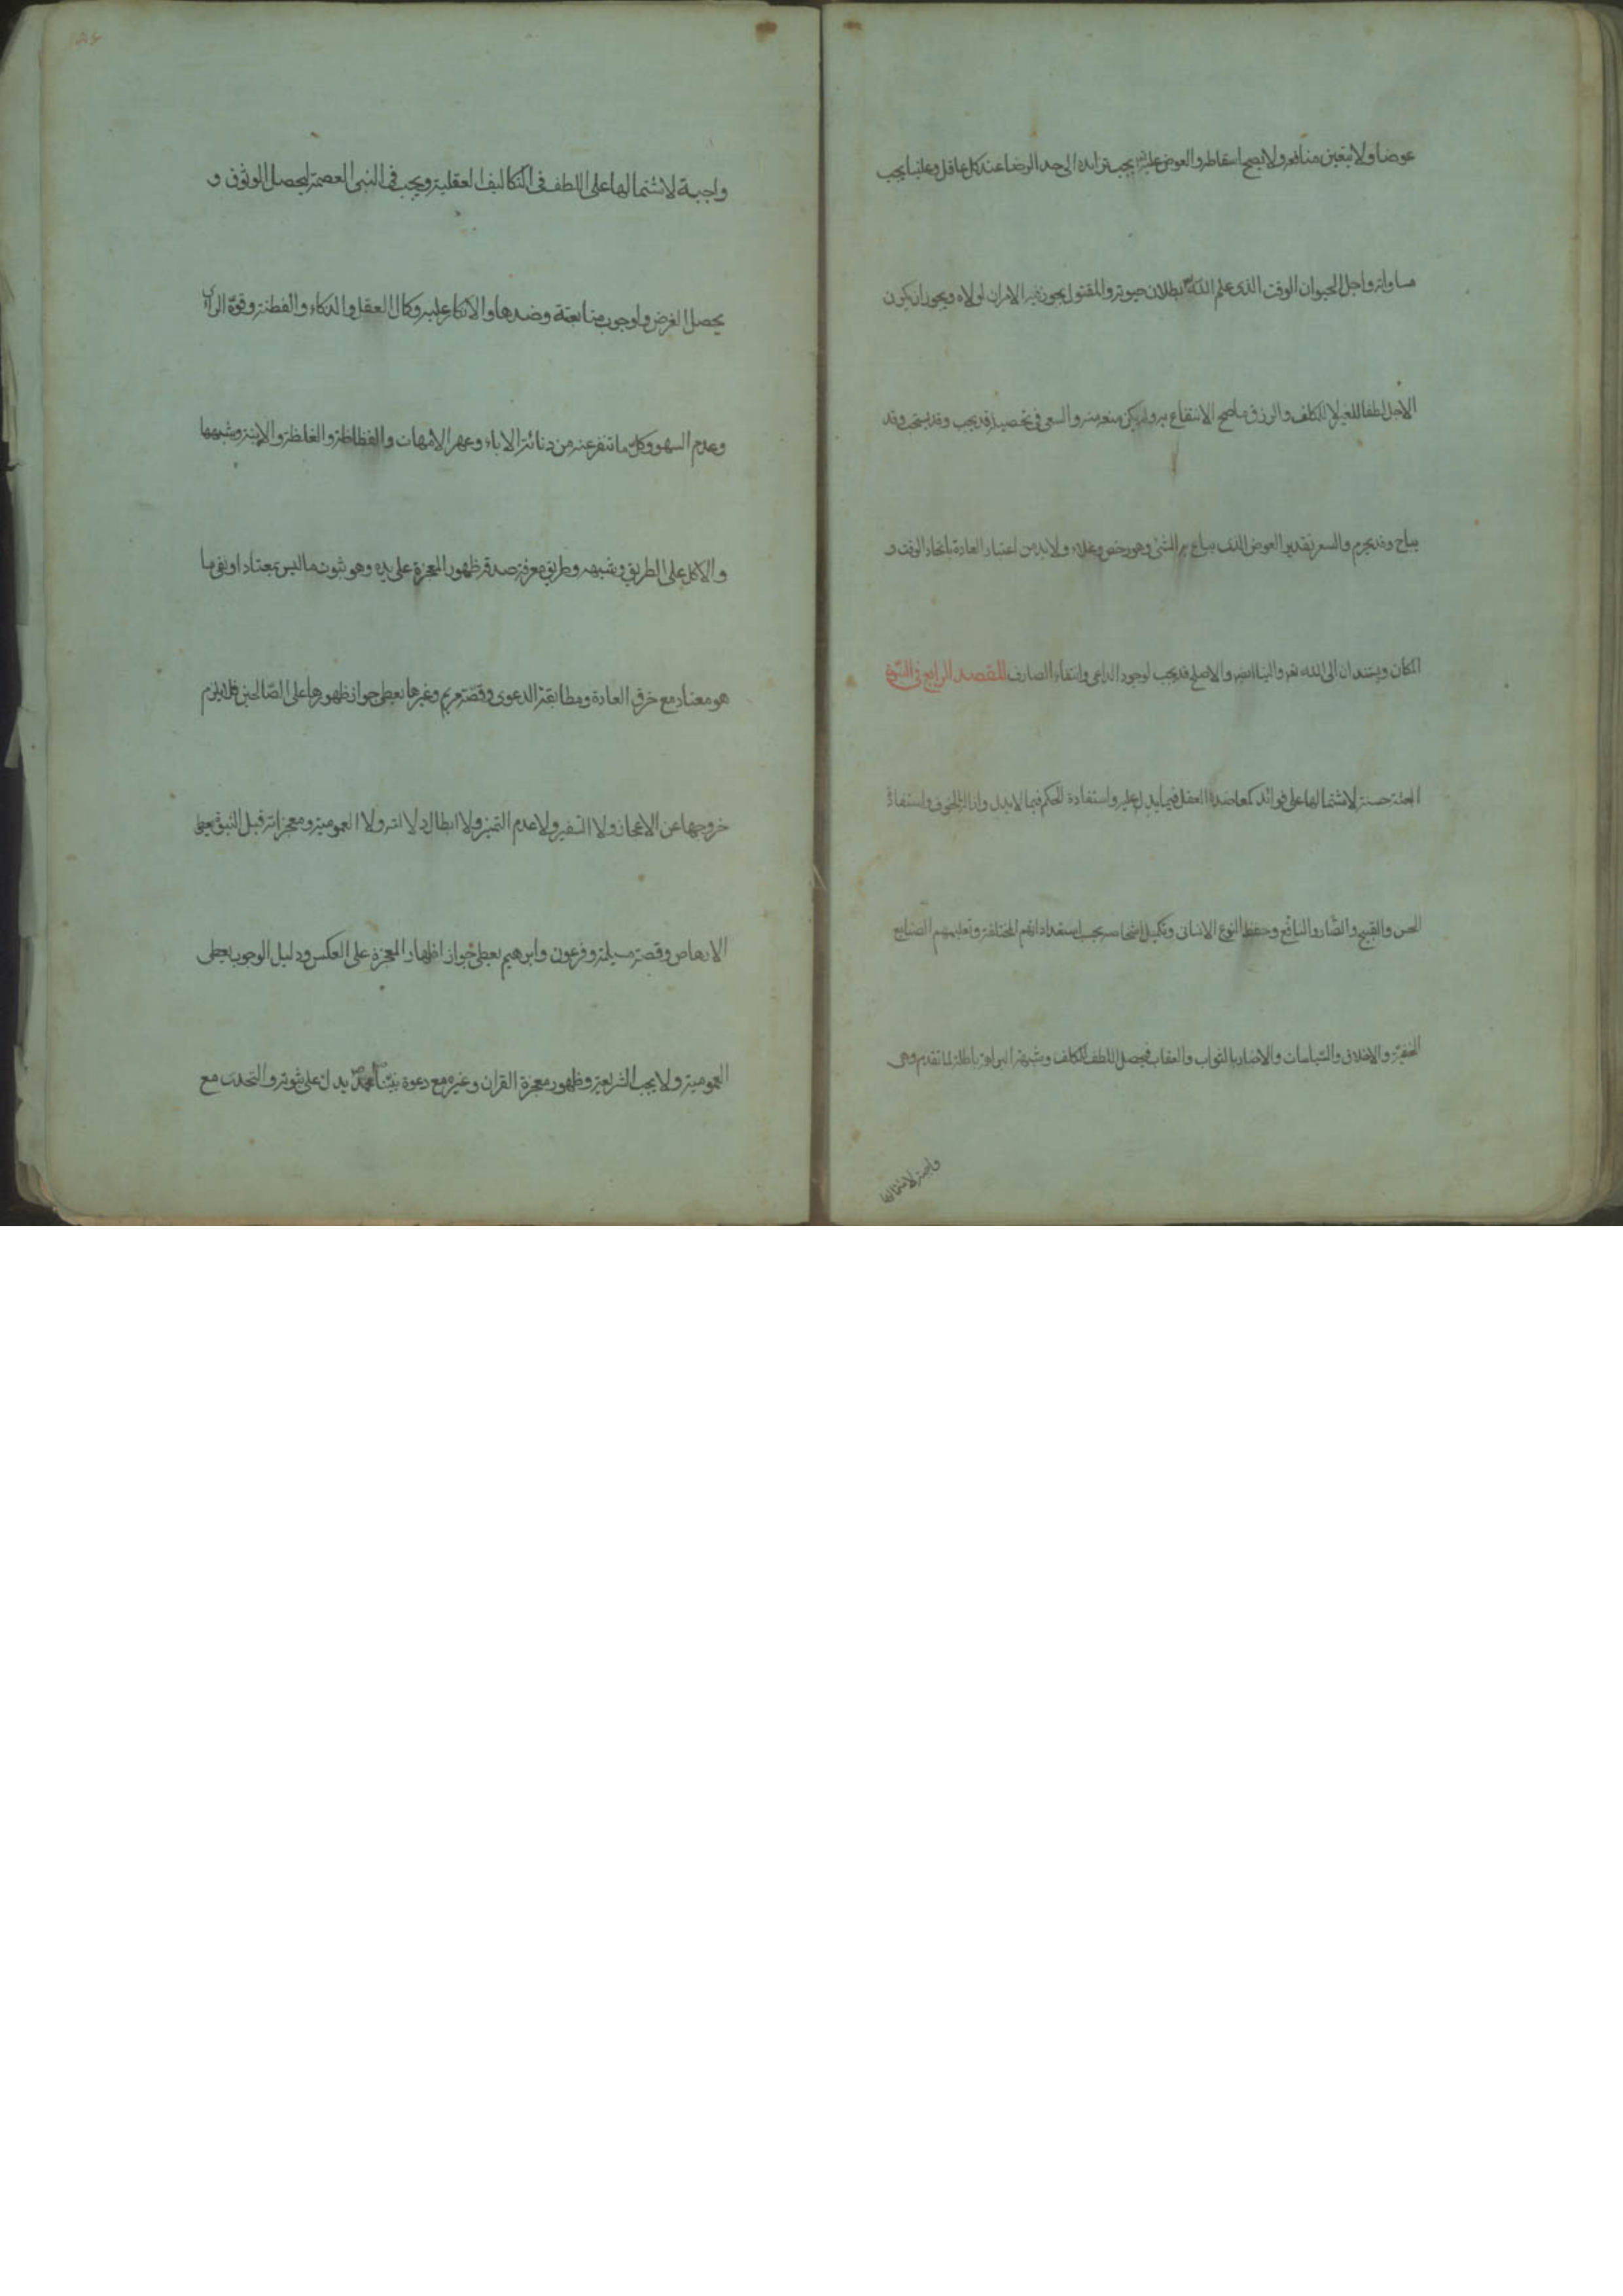 عوضا ولا يتعين منافعه ولا يصح اسقاطه والعوض عليه يجب تزايده الى حد الرضا عند كل عاقل وعلينا يجب
مساواته واجل الحيوان الوقت الذى علم الله بطلان حيوته والمقتول يجوز فيه الامران لولاه ويجوز ان يكون
الاجل لطفا للغير لا للمكلف والرزق ما صح الانتفاع به ولم يكن منعه منه والسعى فى تحصيله قد يجب وقد يستحب وقد
يباح وقد يحرم والسعر تقدير العوض الذى يباع به الشئ وهو رخص وغلاء ولا بد من اعتبار العادة باتحاد الوقت و
المكان ويستندان الى الله تعه والينا ايضه والاصلح قد يجب لوجود الداعى وانتفاء الصارف المقصد الرابع فى النبوة
البعثة حسنة لاشتمالها على فوائد كمعاضدة العقل فيما يدل عليه واستفادة الحكم فيما لا يدل وازالة الخوف واستفادة
الحسن والقبيح والضار والنافع وحفظ النوع الانسانى وتكميل اشخاصه بحسب استعداداتهم المختلفة وتعليمهم الصنايع
الخفية والاخلاق والسياسات والاخبار بالثواب والعقاب فيحصل اللطف للمكلف وشبهة البراهمة باطلة لما تقدم وهى
واجبة لاشتمالها
واجبة لاشتمالها على اللطف فى التكاليف العقلية ويجب فى النبى العصمة ليحصل الوثوق و
يحصل الغرض ولوجوب متابعته وضدها والانكار عليه وكمال العقل والذكاء والفطنة وقوة الراى
وعدم السهو وكل ما تنفر عنه من دنائة الاباء وعهر الامهات والفظاظة والغلظة والابنة وشبهها
والاكل على الطريق وشبهه وطريق معرفة صدقه ظهور المعجزة على يده وهو ثبوت ما ليس بمعتاد او نفى ما
هو معتاد مع خرق العادة ومطابقة الدعوى وقصة مريم وغيرها يعطى جواز ظهورها على الصالحين ولا يلزم
خروجها عن الاعجاز ولا التنفير ولا عدم التميز ولا ابطال دلالته ولا العمومية ومعجزاته قبل النبوة يعطى
الارهاص وقصة مسيلمة وفرعون وابرهيم يعطى جواز اظهار المعجزة على العكس ودليل الوجوب يعطى
العمومية ولا يجب الشريعة وظهور معجزة القران وغيره مع دعوة نبينا محمد ص يدل على نبوته والتحدى مع